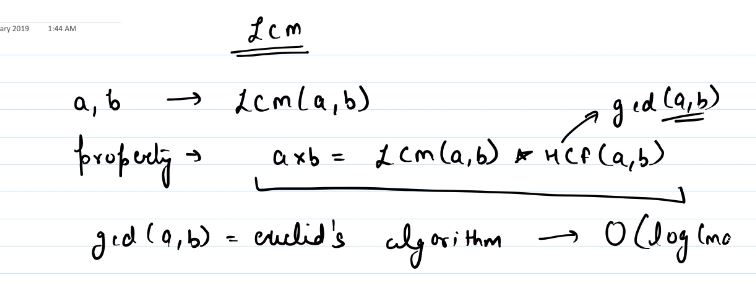 ary 2019 1:44 AM
Lcm
a, b → Lcm(a,b)
gcd (a,b)
property → a×b = Lcm(a,b) * HCF(a,b)
gcd (a,b) = euclid's algorithm → O(log(ma